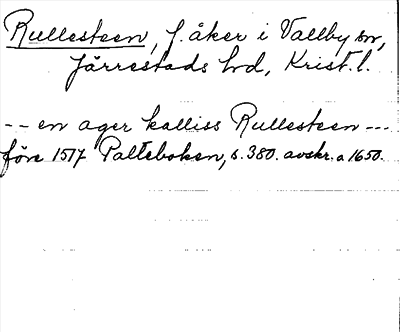 Rullesteen, f. åker i Vallby sn,
Järrestads hd, Krist. l.
-- en ager kalliss Rullesteen ---
före 1517 Palteboken, s. 380. avskr. a 1650.